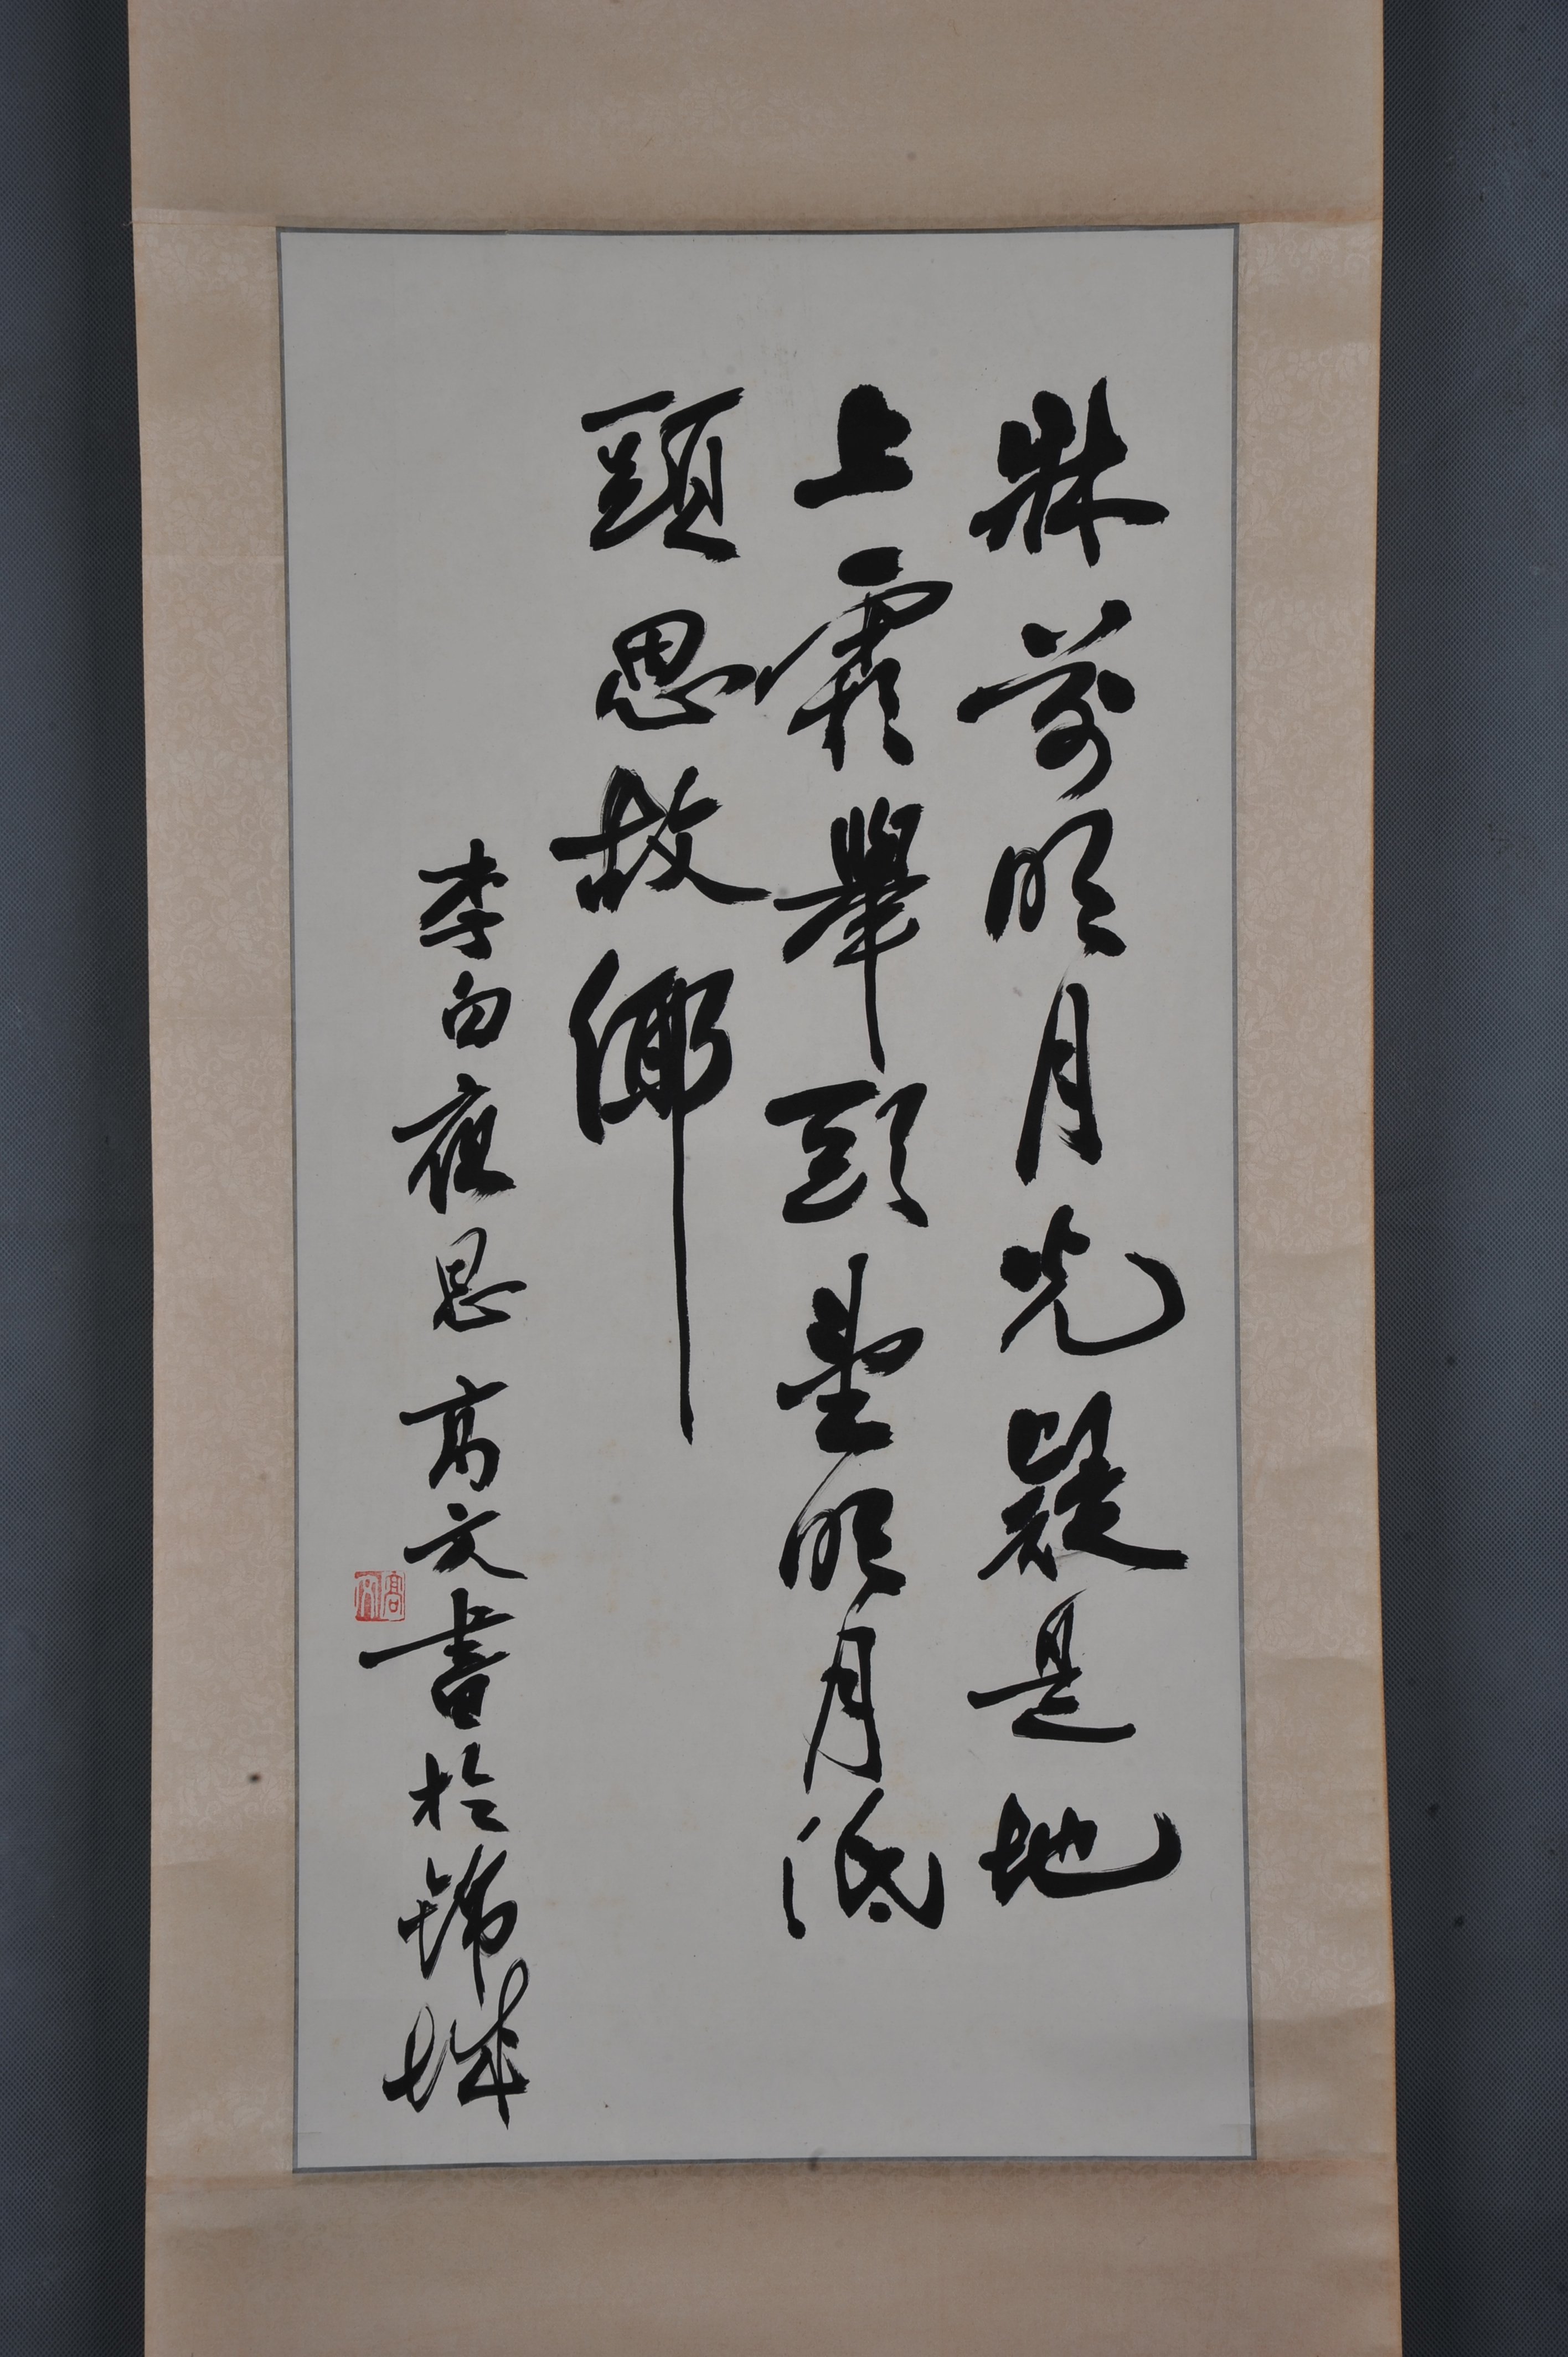 牀前明月光疑是地
上霜舉頭望明月低
頭思故鄉
李白夜思 高文書於錦城
高文